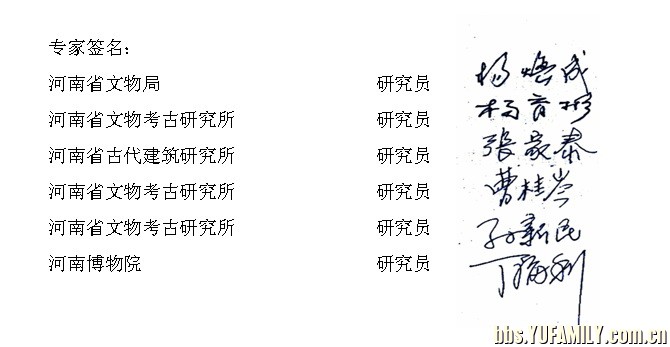 专家签名：
河南省文物局 研究员 杨焕成
河南省文物考古研究所 研究员 杨育彬
河南省古代建筑研究所 研究员 張家泰
河南省文物考古研究所 研究员 曹桂岑
河南省文物考古研究所 研究员 孙新民
河南博物院 研究员 丁福利
bbs.YUFAMILY.com.cn